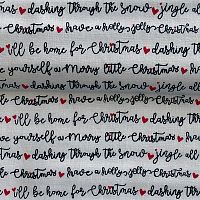 dashing through the snow jingle all
Christmas ♥ have a holly jolly Christmas
♥ i'll be home for Christmas ♥ dashing
have yourself a Merry little Christmas
Christmas ♥ dashing through the snow ♥ jingle
Christmas ♥ have a holly jolly Christmas
♥ i'll be home for Christmas ♥ dashing
have yourself a Merry little Christmas
Christmas ♥ dashing through the snow ♥ jingle all
Christmas ♥ have a holly jolly Christmas
♥ i'll be home for Christmas ♥ dashing